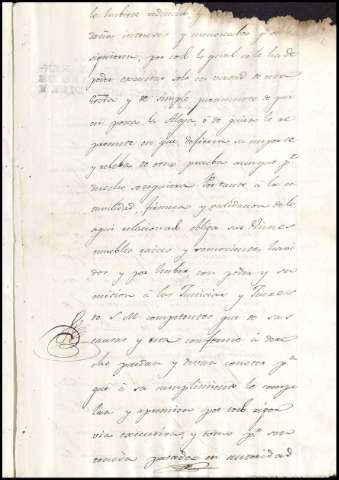 lo hubiere redimido, y
daños intereses y menoscabos q.e se le
siguieren, por todo lo qual se le ha de
poder executar solo en virtud de esta
Escrra y de simple juramento de que
en posea la Alaja ó de quien le re
presente en que defieren su importe
y releba de otra prueba aunque p.r
derecho se requiera. Por tanto á la es
tabilidad, firmeza y validacion de lo
aqui relacionado obliga sus Vienes
muebles raices y semovientes, havi
dos y por haber, con poder y su
mision á los Justicias y Jueces
de S. M. competentes que de sus
causas y esta conforme á dere
cho puedan y devan conocer p.a
que á su cumplimiento le compe
lan y apremien por todo rigor
via executiva, y como p.r sen
tencia pasada en autoridad